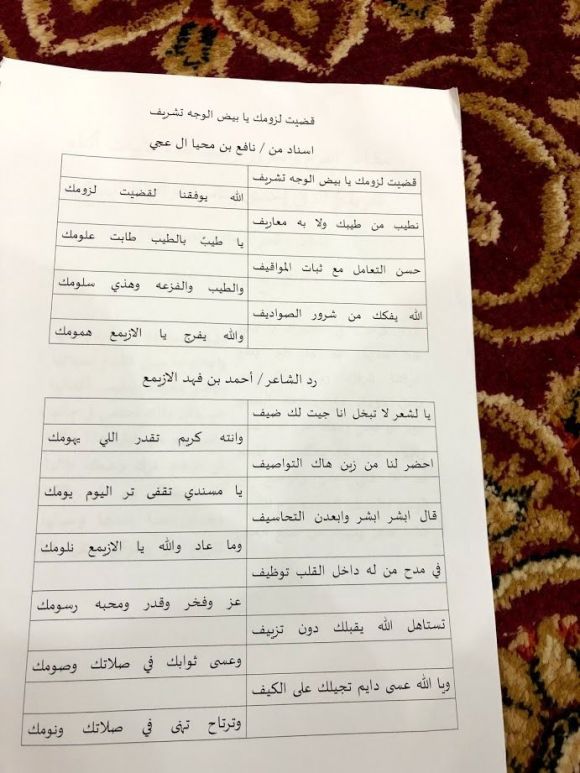 قضيت لزومك يا بيض الوجه تشريف
اسناد من / نافع بن محيا ال عجي
قضيت لزومك يا بيض الوجه تشريف
الله يوفقنا لقضيت لزومك
نطيب من طيبك ولا به معاريف
يا طيبٌ بالطيب طابت علومك
حسن التعامل مع ثبات المواقيف
والطيب والفزعه وهذي سلومك
الله يفكك من شرور الصواديف
والله يفرج يا الازيمع همومك
رد الشاعر / أحمد بن فهد الازيمع
يا لشعر لا تبخل انا جيت لك ضيف
وانته كريم تقدر اللي يهومك
احضر لنا من زين هاك التواصيف
يا مسندي تقفى تر اليوم يومك
قال ابشر ابشر وابعدن التحاسيف
وما عاد والله يا الازيمع نلومك
في مدح من له داخل القلب توظيف
عز وفخر وقدر ومحبه رسومك
تستاهل الله يقبلك دون تزييف
وعسى ثوابك في صلاتك وصومك
ويا الله عسى دايم تجيلك على الكيف
وترتاح تهنى في صلاتك ونومك